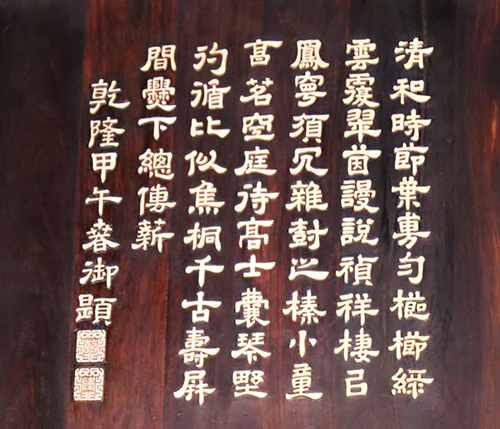 清和時節葉旉勻櫛
雲覆翠茵謾說禎祥棲
鳳寧須冗雜尌之榛小童
茗空庭待高士囊琴野
彴循比似焦桐千古壽屏
間爨下總傳薪
乾隆甲午春御題